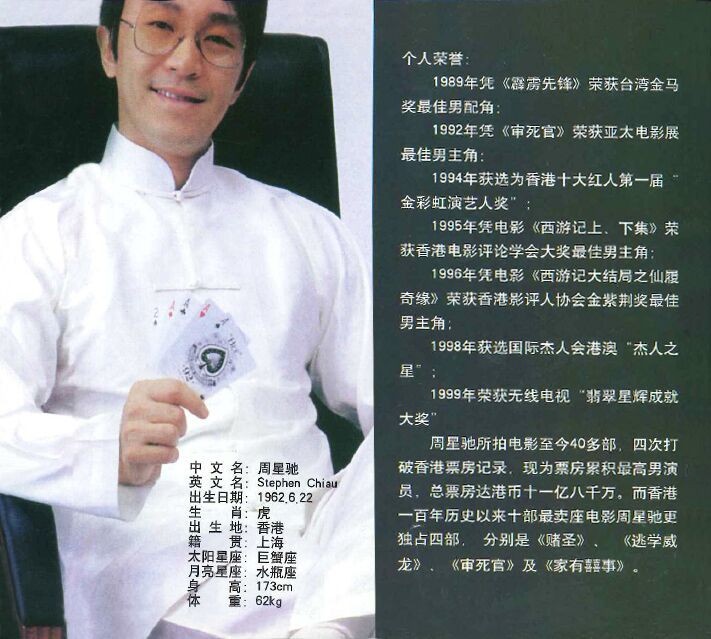 中文名：周星驰
英文名：Stephen Chiau
出生日期：1962.6.22
生肖：虎
出生地：香港
籍贯：上海
太阳星座：巨蟹座
月亮星座：水瓶座
身高：173cm
体重：62kg
个人荣誉：
1989年凭《霹雳先锋》荣获台湾金马
奖最佳男配角；
1992年凭《审死官》荣获亚太电影展
最佳男主角；
1994年获选为香港十大红人第一届“
金彩虹演艺人奖”；
1995年凭电影《西游记上、下集》荣
获香港电影评论学会大奖最佳男主角；
1996年凭电影《西游记大结局之仙履
奇缘》荣获香港影评人协会金紫荆奖最佳
男主角；
1998年获选国际杰人会港澳“杰人之
星”；
1999年荣获无线电视“翡翠星辉成就
大奖”
周星驰所拍电影至今40多部，四次打
破香港票房记录，现为票房累积最高男演
员，总票房达港币十一亿八千万。而香港
一百年历史以来十部最卖座电影周星驰更
独占四部，分别是《赌圣》、《逃学威
龙》、《审死官》及《家有囍事》。